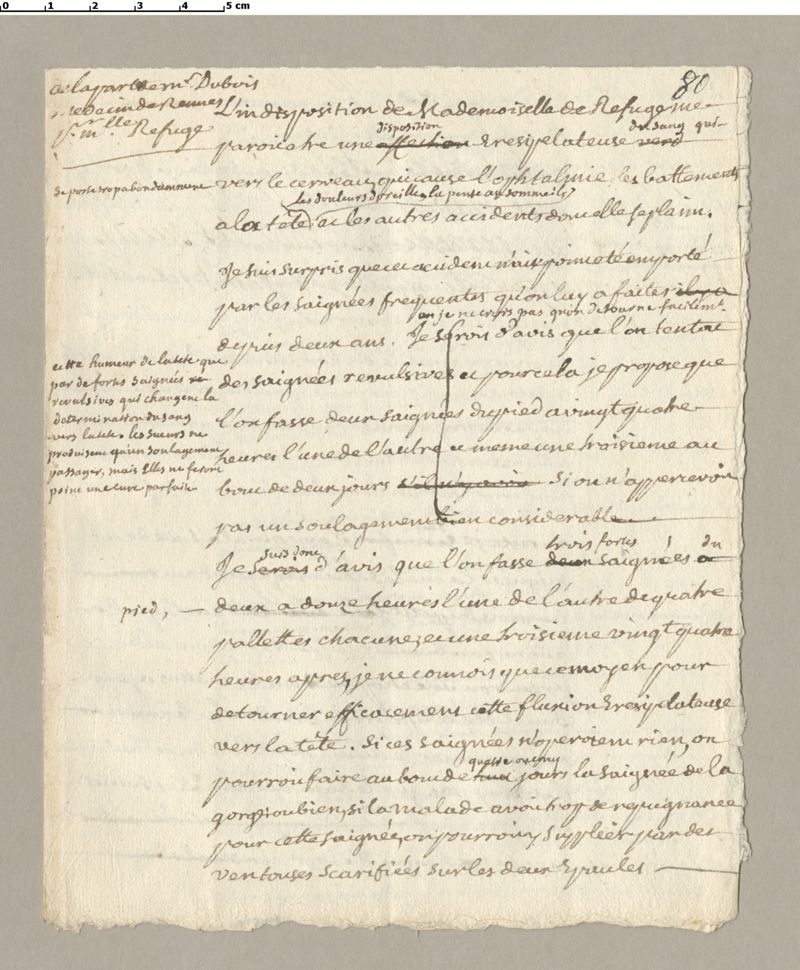 0 1 2 3 4 5 cm
80
de la part de mr. Dubois
medecin de Rennes
pr. mlle Refuge
L'indisposition de Mademoiselle de Refuge me
disposition du sang qui
paroit être une affection Eresipelateuse vers
se porte trop abondamment
vers le cerveau, qui cause l'ophtalmie, les battements
les douleurs d'oreille, la pente au sommeil,
a la tête, et les autres accidents dont elle se plaint.
Je suis surpris que cet accident n'ait point eté emporté
par les saignées frequentes qu'on luy a faites il y a
on je ne crois pas qu'on detourne facilemt.
depuis deux ans. Je serois d'avis que l'on tentat
cette humeur de la tete que
par de fortes saignées re-
revulsives qui changent la
determination du sang
vers la tete. les sueurs ne
produisent qu'un soulagement
passager, mais Elles ne feront
point une cure parfaite.
des saignées revulsives et pour cela je propose que
l'on fasse deux saignées du pied a vingt quatre
heures l'une de l'autre et meme une troisieme au
bout de deux jours s'il n'y avoit si on n'appercevoit
pas un soulagement bien considerable.
suis donc trois fortes du
Je serois d'avis que l'on fasse deux saignées a
pied, — deux a douze heures l'une de l'autre de quatre
pallettes chacune, et une troisieme vingt quatre
heures apres, je ne connois que ce moyen pour
detourner efficacement cette fluxion Eresipelateuse
vers la tête. Si ces saignées n'operoient rien, on
quatre ou cinq
pourroit faire au bout de jours la saignée de la
gorge ou bien, si la malade avoit trop de repugnance
pour cette saignée, on pourroit y suppléer par des
ventouses scarifiées sur les deux Epaules —